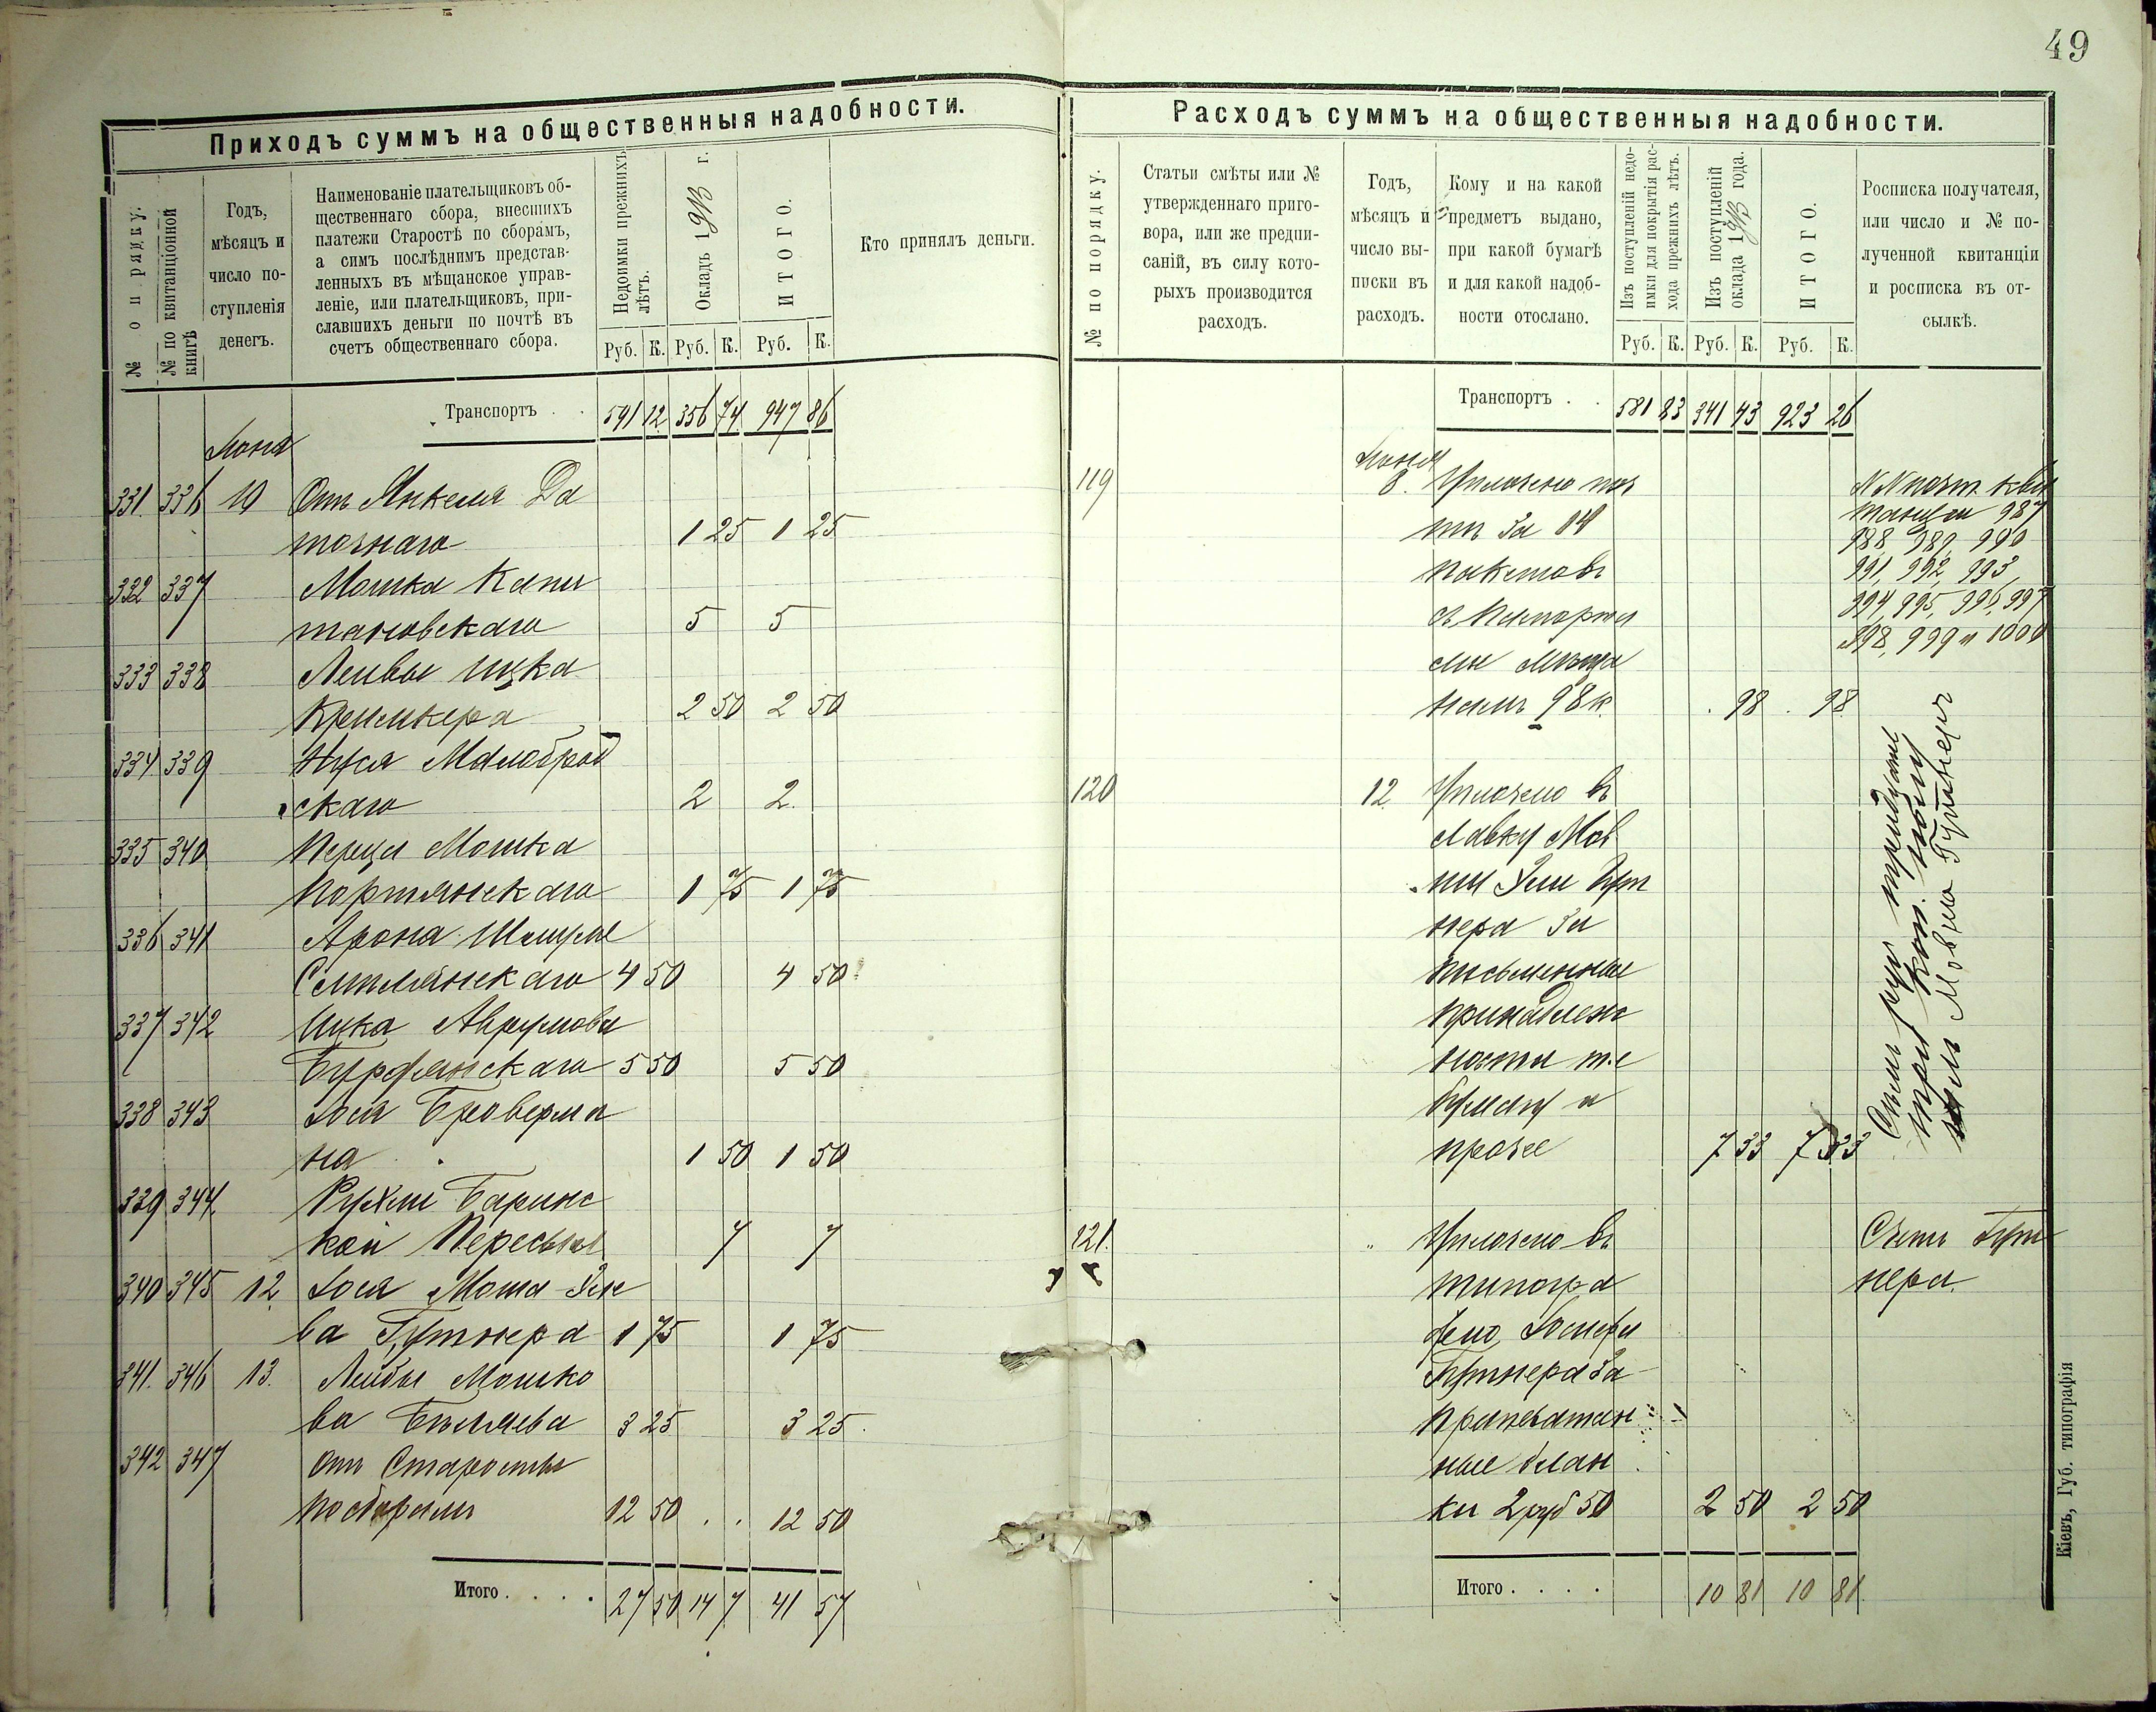 49
Приходъ суммъ на общественныя надобности.
№ по порядку.
№ по квитанціонной
книгѣ
Годъ,
мѣсяцъ и
число по-
ступленія
денегъ.
Наименованіе плательщиковъ об-
щественнаго сбора, внесшихъ
платежи Старостѣ по сборамъ,
а симъ послѣднимъ представ-
ленныхъ въ мѣщанское управ-
леніе, или плательщиковъ, при-
славшихъ деньги по почтѣ въ
счетъ общественнаго сбора.
Недоимки прежнихъ
лѣтъ.
Окладъ 1913 г.
ИТОГО.
Кто принялъ деньги.
Руб. К. Руб. К. Руб. К.
Транспортъ . . 591 12 356 74 947 86
331. 336 10 Отъ Янкеля Да
точнаго 1 25 1 25
332 337 Мошка Капи
тановскаго 5 5
333 338 Лейвы Ицка
2 50 2 50
334 339 Малоброд
скаго 2 2.
335 340 Перца Мошка
Портянскаго 1 75 1 75
336 341 Арона Шмуля
Смилянскаго 4 50 4 50
337 342 Ицка Аврумова
5 50 5 50
338 343 Іося Броверма
на 1 50 1 50
339 344. Рухли Баринс
кой 7 7
340 345 12. Іося Моша
ва Гутнера 1 75 1 75
341. 346 13. Лейбы Мошко
ва Бѣляева 3 25 3 25.
342 347 Отъ Старосты
по сборамъ 12 50 . . 12 50
Итого . . . . 27 50 14 7 41 57
Расходъ суммъ на общественныя надобности.
№ по порядку.
Статьи смѣты или №
утвержденнаго приго-
вора, или же предпи-
саній, въ силу кото-
рыхъ производится
расходъ.
Годъ,
мѣсяцъ и
число вы-
писки въ
расходъ.
Кому и на какой
предметъ выдано,
при какой бумагѣ
и для какой надоб-
ности отослано.
Изъ поступленій недо-
имки для покрытія рас-
хода прежнихъ лѣтъ.
Изъ поступленій
оклада 1913 года.
ИТОГО.
Росписка получателя,
или число и № по-
лученной квитанціи
и росписка въ от-
сылкѣ.
Руб. К. Руб. К. Руб. К.
Транспортъ . . 581 83 341 43 923 26
119 8. Уплачено поч
тѣ за 14
пакетовъ
съ паспорта
ми мѣща
намъ 98 к. . 98 . 98
N N почт. кви
танцiи 987
988, 989, 990
991, 992, 993,
994, 995, 996, 997
998, 999 и 1000
120 12. Уплачено въ
лавку Мов
ши Гут
нера за
письменныя
принадлеж
ности т.е
бумагу и
прочее 7 33 7 33
Семь руб тридцать
три коп. получ
илъ Мовша Гутнеръ
121. " Уплачено въ
типогра
фію Іосифа
Гутнера за
пропечатан
ные блан
ки 2 руб 50 2 50 2 50
Счетъ Гут
нера.
Итого . . . . 10 81 10 81.
Кіевъ, Губ. типографія